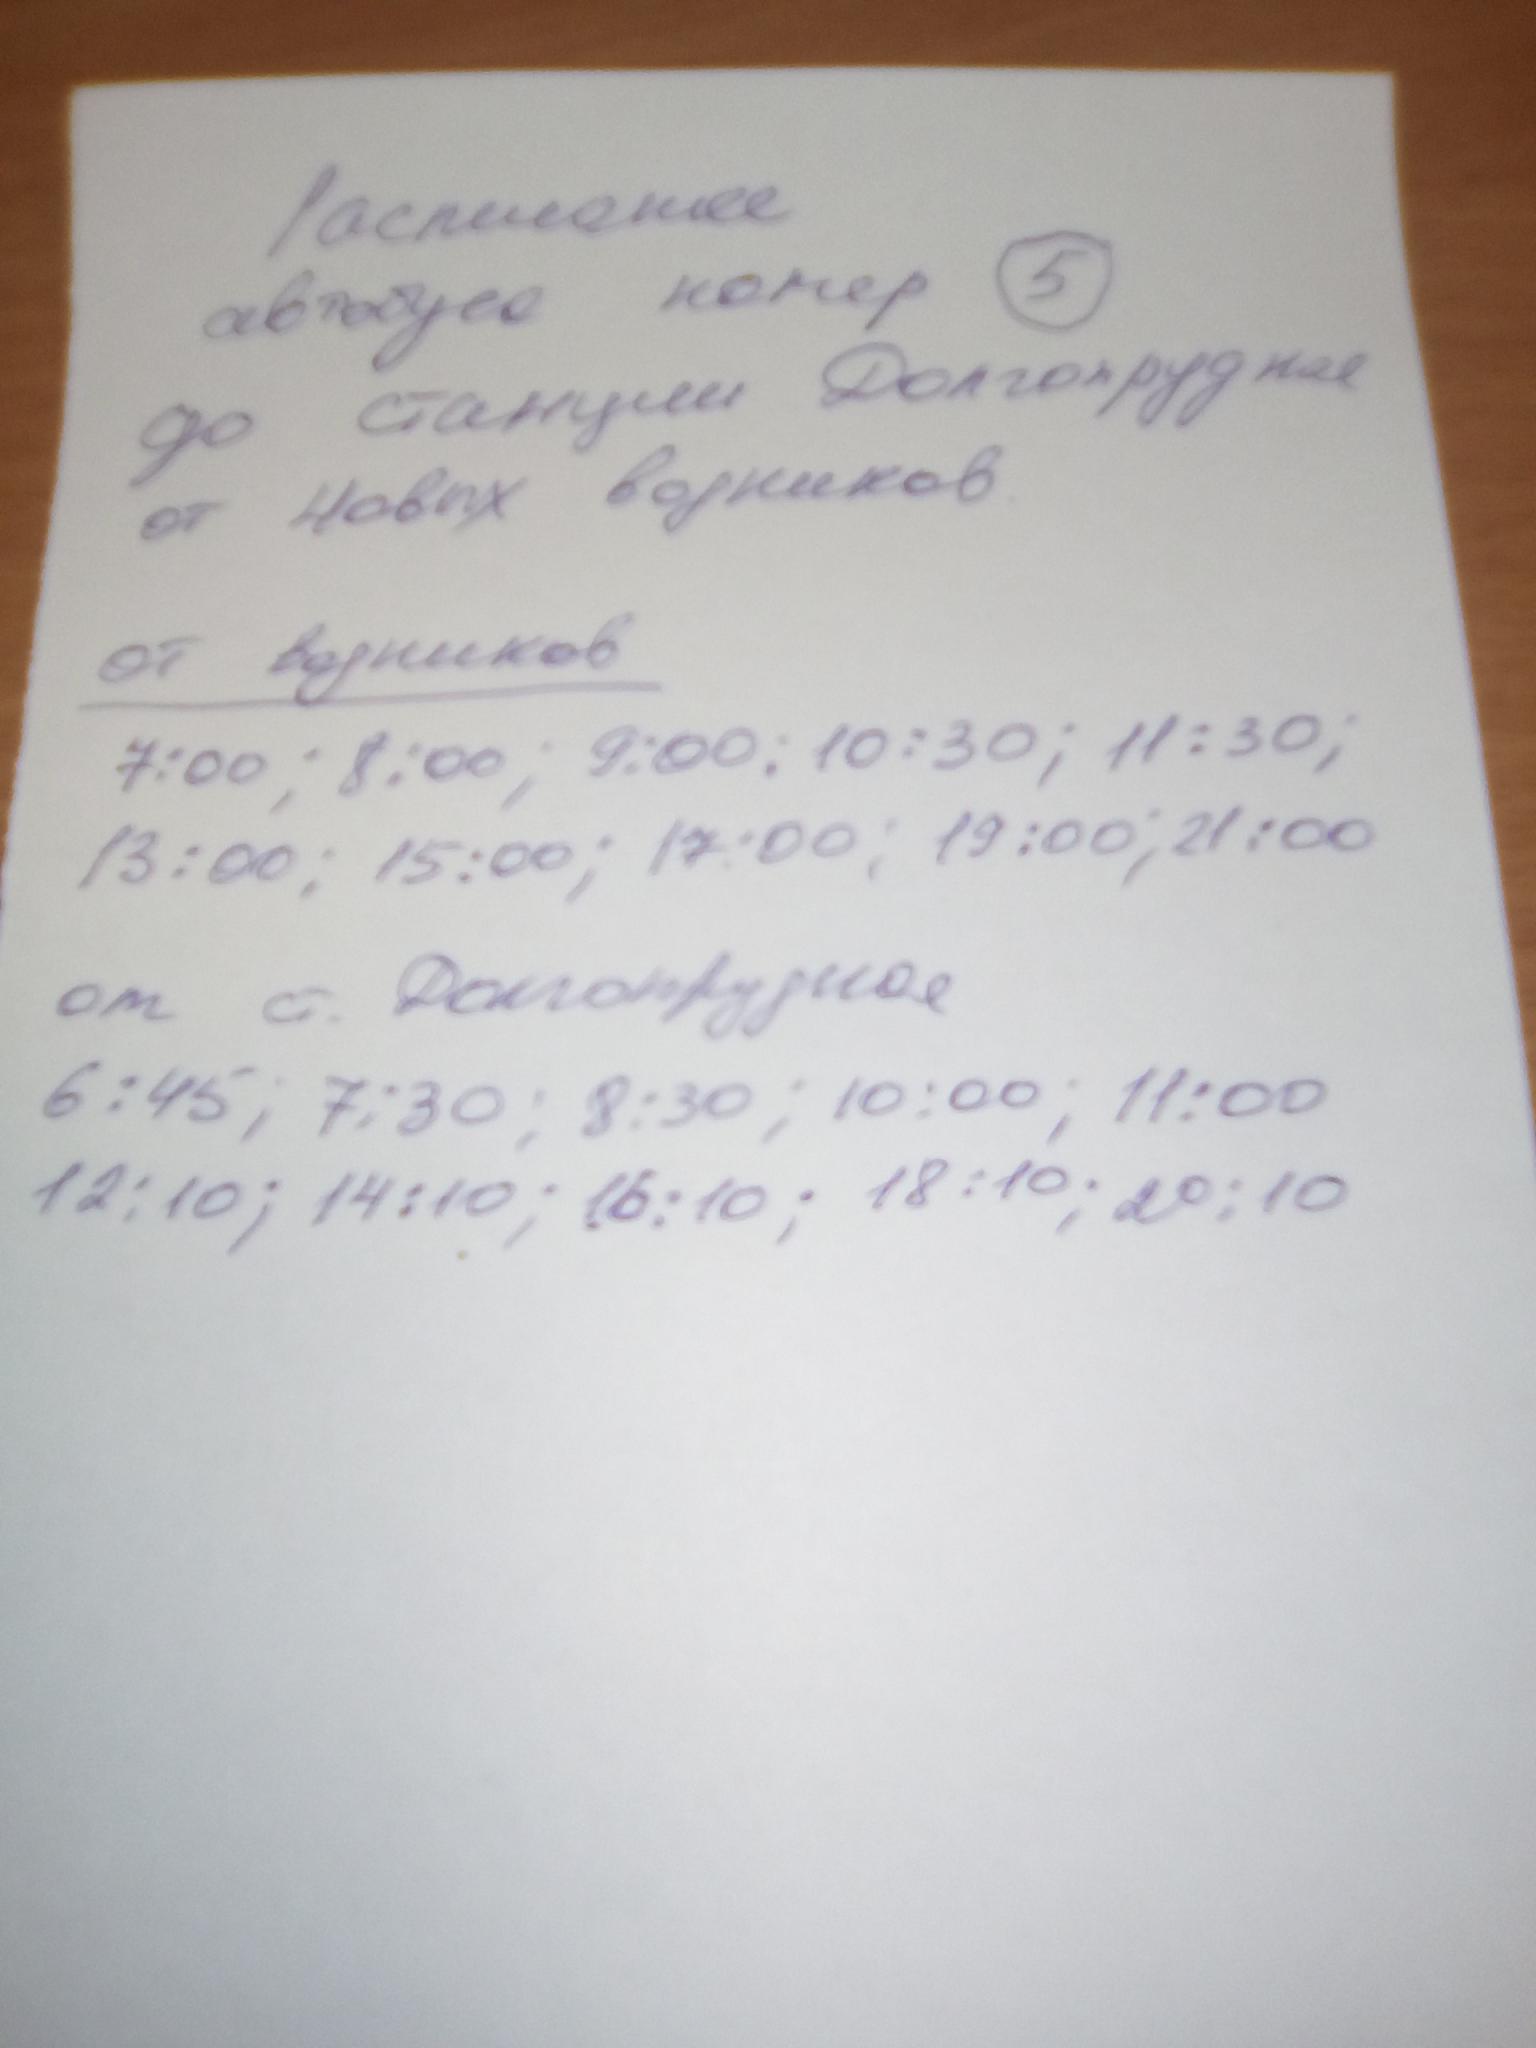 Расписание
автобуса номер 5
до станции Долгопрудная
от Новых водников.
от водников
7:00; 8:00; 9:00; 10:30; 11:30;
13:00; 15:00; 17:00; 19:00; 21:00
от ст. Долгопрудная
6:45; 7:30; 8:30; 10:00; 11:00
12:10; 14:10; 16:10; 18:10; 20:10